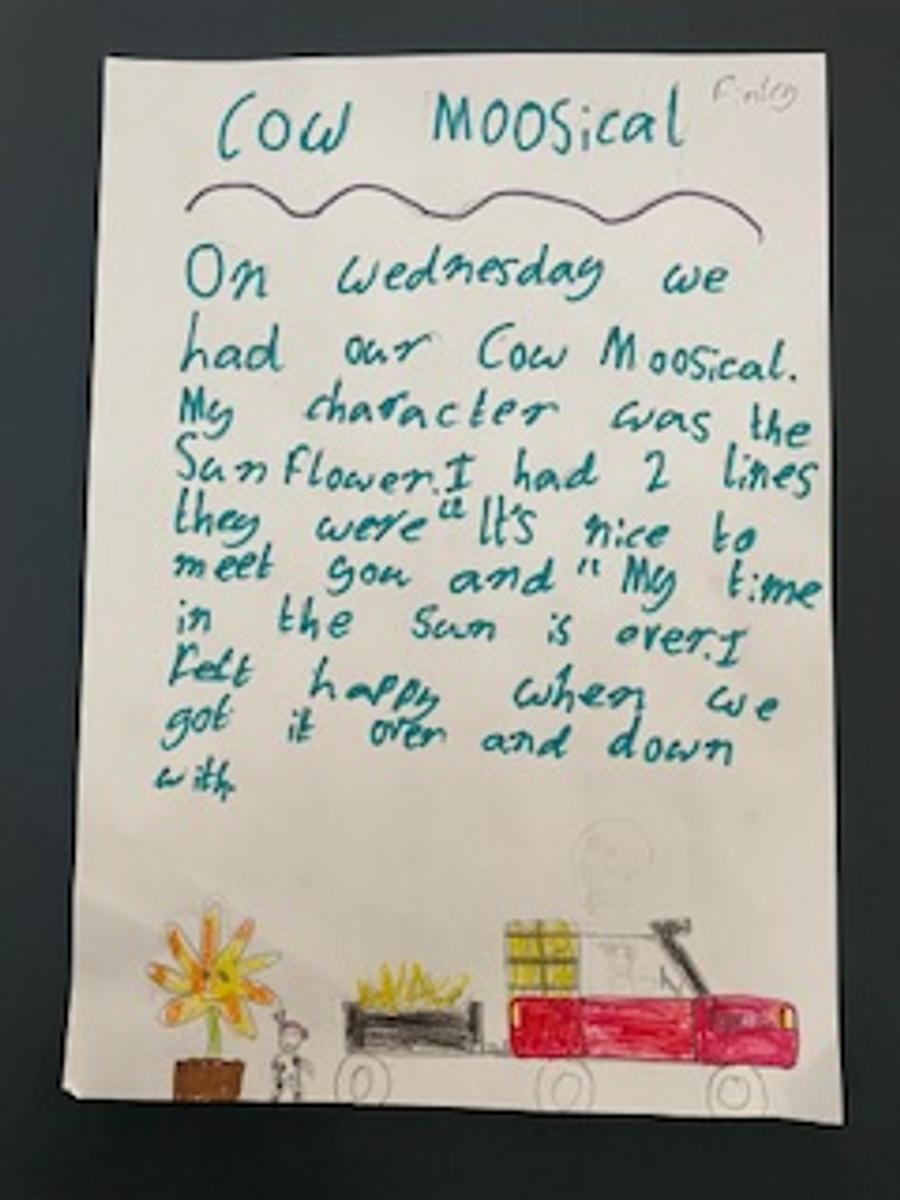 Finley
Cow Moosical
On wednesday we
had our Cow Moosical.
My character was the
Sunflower. I had 2 lines
they were "It's nice to
meet you and " My time
in the sun is over. I
felt happy when we
got it over and down
with